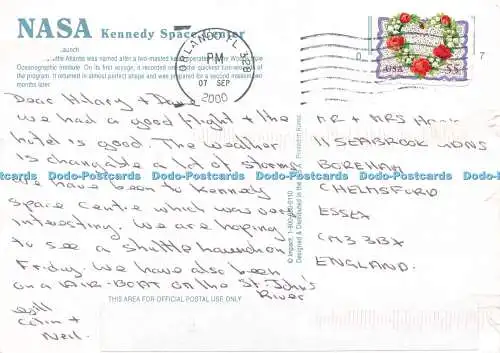 NASA Kennedy Space Center
Launch
Atlantis was named after a two-masted ketch operated for the Woods Hole
Oceanographic Institute. On its first voyage, it recorded one of the quickest turn-arounds of
the program. It returned in almost perfect shape and was prepared for a second mission
months later.
ORLANDO FL 328
PM
07 SEP
2000
USA 55
Dear Hilary + Dave
we had a good flight + the
hotel is good. The weather
is changable a lot of storms
we have been to Kennedy
Space Centre which was very
interesting. We are hoping
to see a shuttle launch on
Friday. We have also been
on a AIR-BOAT ON the St. John's
River
Colin +
Neil.
MR + MRS
11 SEABROOK GDNS
BOREHAM
CHELMSFORD
ESSEX
CM3 3BX
ENGLAND.
© Impact, 1-800-
Designed & Distributed
THIS AREA FOR OFFICIAL POSTAL USE ONLY
Dodo-Postcards Dodo-Postcards Dodo-Postcards Dodo-Postcards Dodo-Postcards